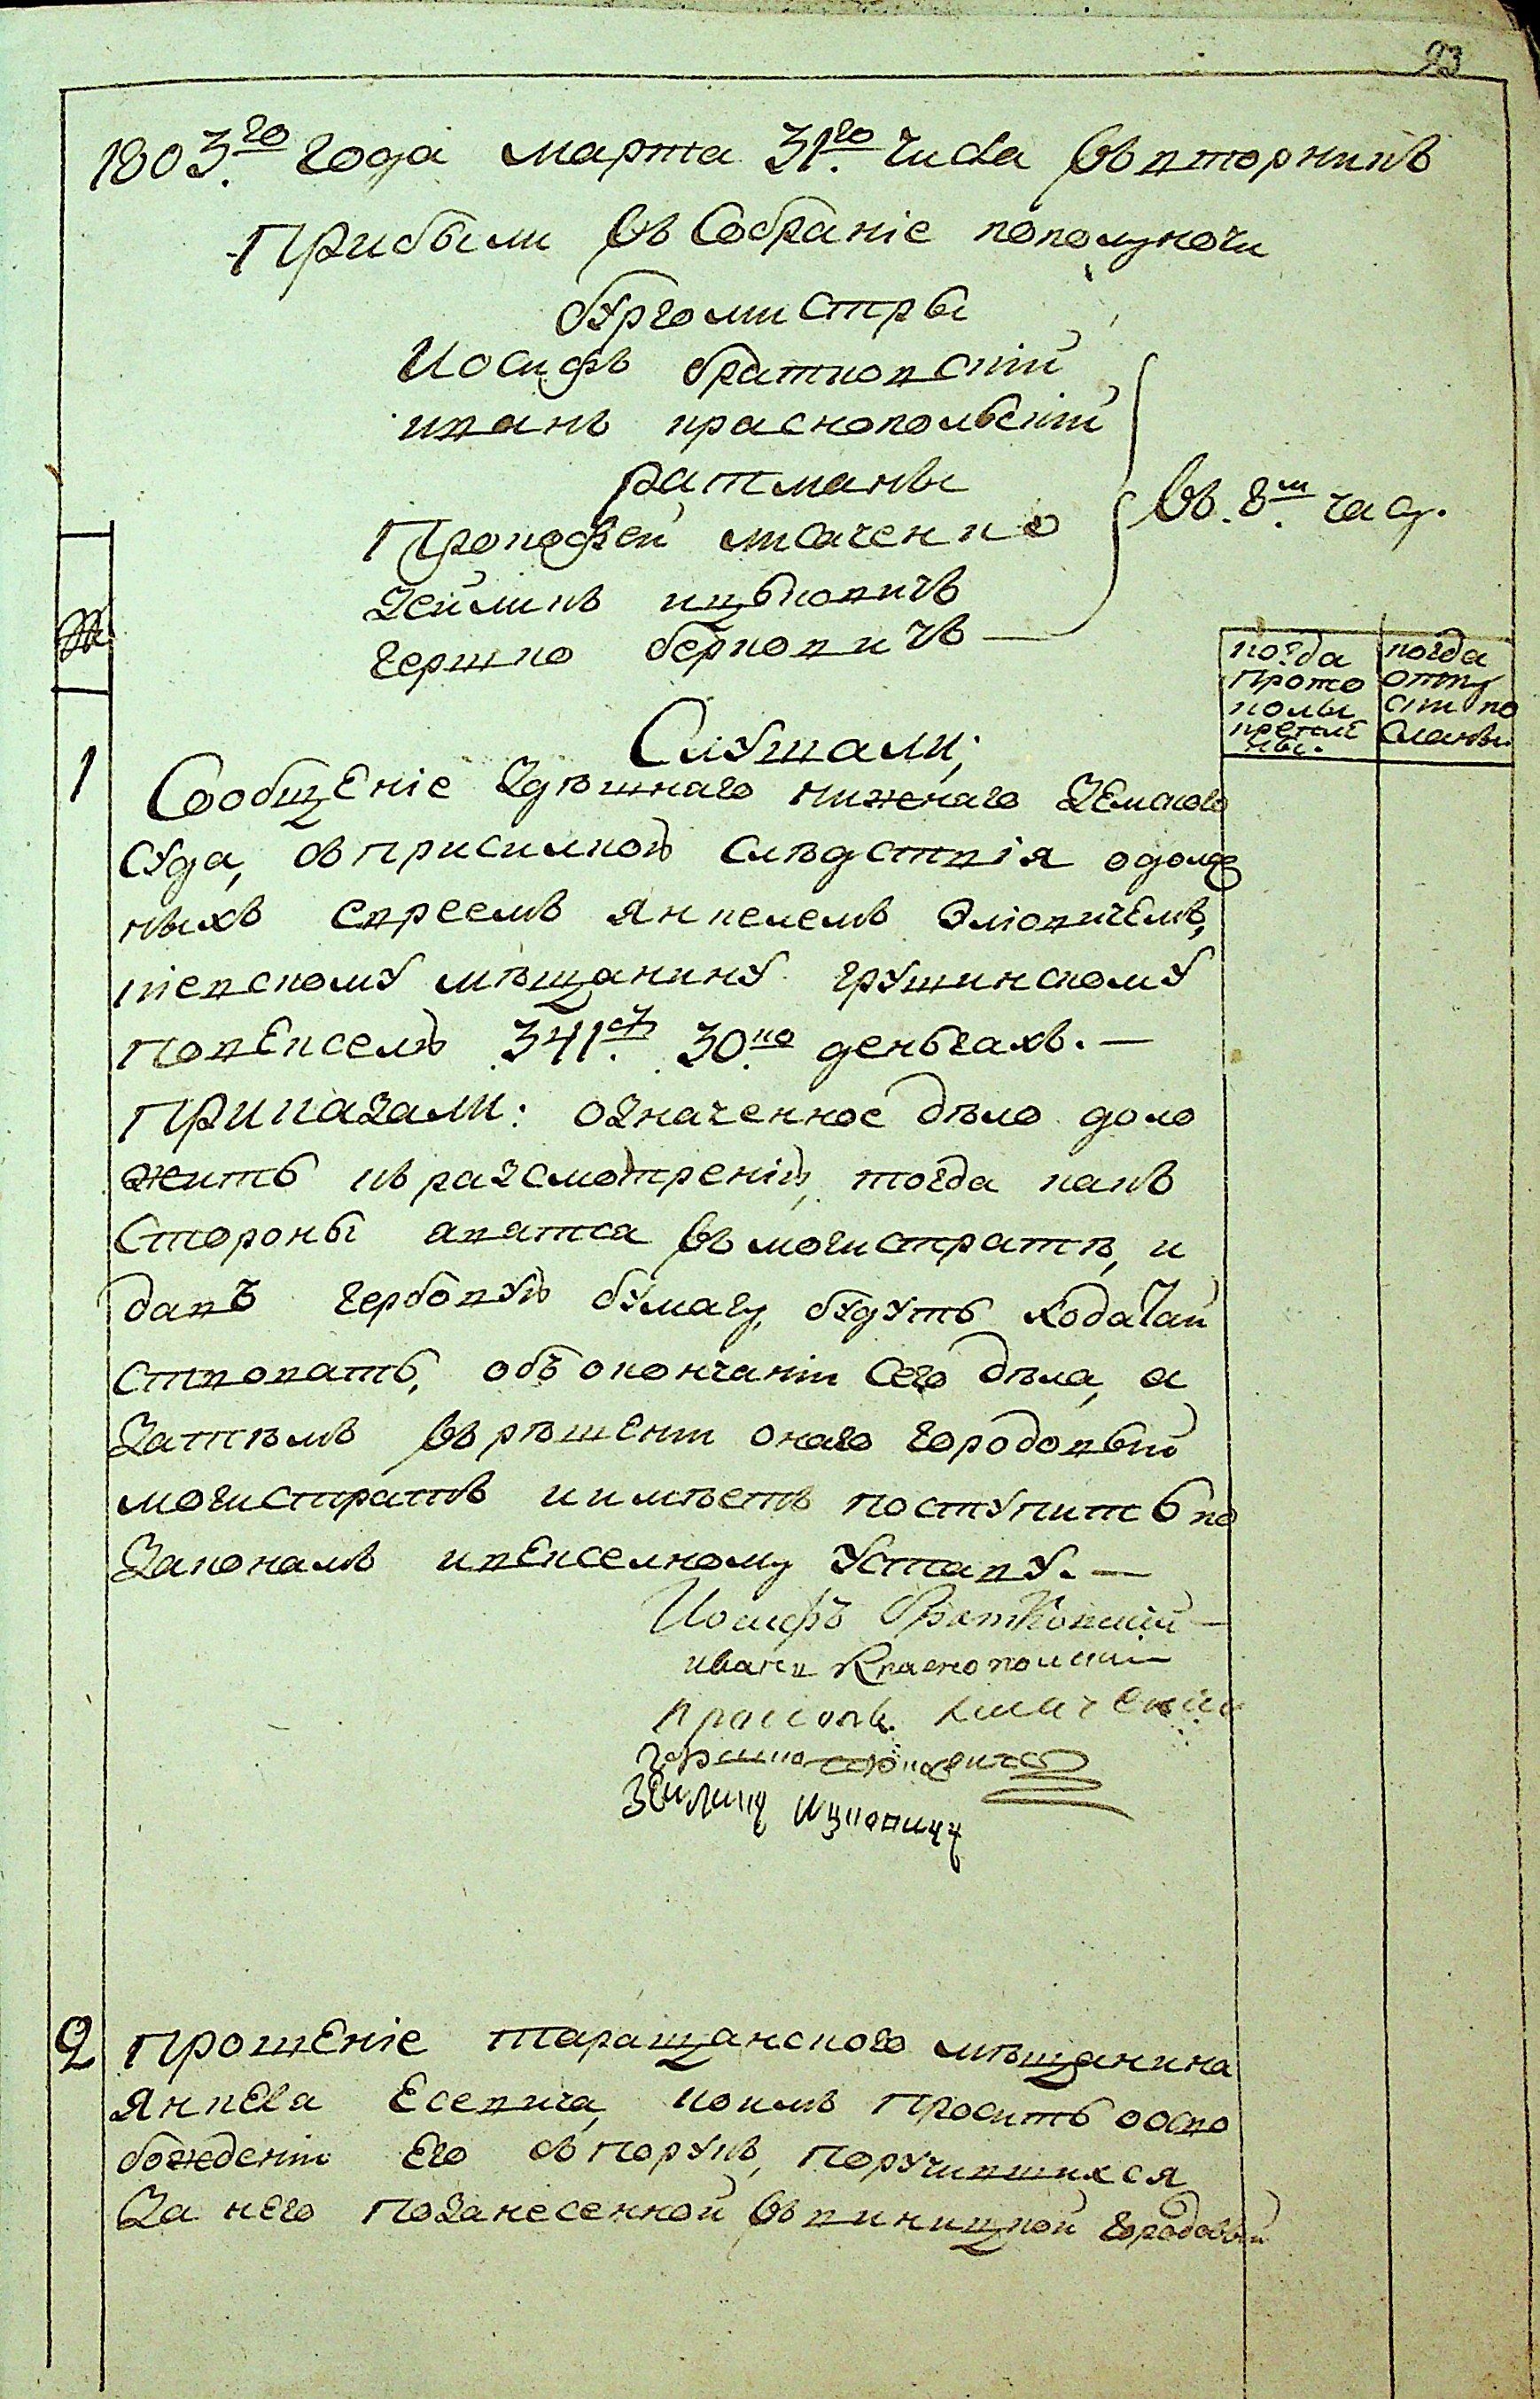 93
1803го года марта 31го числа въ вторникъ
Прибыли въ Собраніе пополуночи
бургомистры
Иосифъ братковскій
иванъ краснопольскій
ратманы
Прокофей лисаченко
Зейликъ ицьковичъ
гершко берковичъ —
въ. 8м. часу.
№
когда прото колы крепле ны.
когда отпу скі по сланы
Слушали;
1
Сообщеніе здѣшнаго нижнаго земского
суда, съ присилкою слѣдствія о долж
ныхъ евреемъ янкелемъ Эліовичемъ,
кіевскому мѣщанину грушинскому
повекселю 341р. 30ко деньгахъ. —
Приказали: означенное дѣло доло
жить къ разсмотренію, тогда какъ
Стороны авятса въ могистратѣ, и
давъ гербовую бумагу, будутъ ходатаи
ствовать, объ окончаніи сего дѣла, а
затѣмъ въ рѣшеніи онаго городовый
могистратъ иимѣетъ поступить по
законамъ ивексельному Уставу. —
Иосифъ Братковскій —
иванъ Краснополскій
гершко берковичъ
Зеиликъ Ицковичъ
2
Прошеніе таращанского мѣщанина
янкеля Есевича, коимъ Проситъ о осво
божденіи Его съ порукъ, поручившихся
за него позанесенной въ виницкой городовый